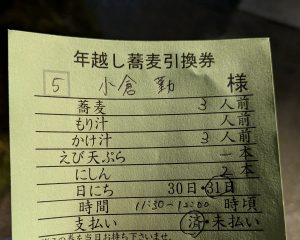 年越し蕎麦引換券
5 小倉 勤 様
蕎麦 3 人前
もり汁 人前
かけ汁 3 人前
えび天ぷら 一 本
にしん 2 本
日にち 30日・31日
時間 11:30~12:00 時頃
支払い 済・未払い
※この券を当日お持ち下さいませ